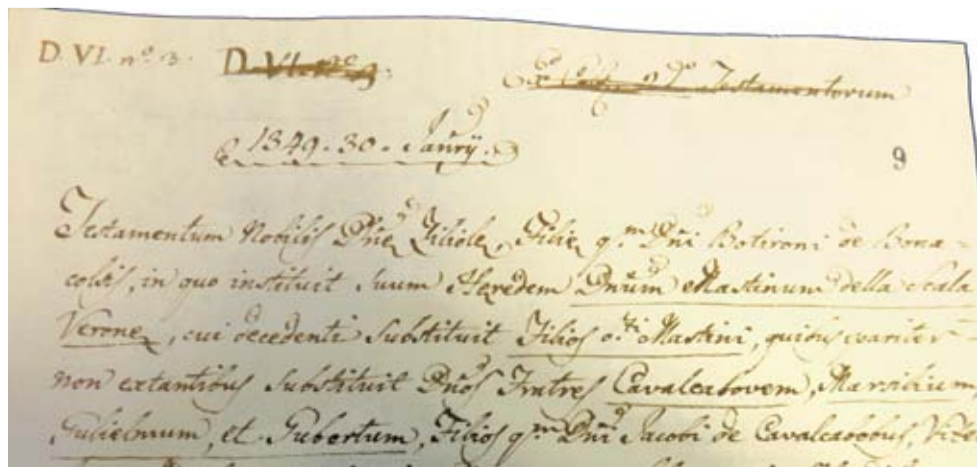 D. VI. nº. 3. D. VI. nº. 3. Testamentorum
1349. 30. Januarij
9
Testamentum Nobilis Dnẽ Ziliole, Filie q.m Dñi Botironi de Bona =
colsis, in quo instituit suum Heredem Dnũm Mastinum della Scala
Verone, cui decedenti substituit Filios d.ti Mastini, quibus pariter
non extantibus substituit Dños Fratres Cavalcabovem, Marsilium,
Gulielmum, et Gubertum, Filios q.m Dñi Jacobi de Cavalcabobus,